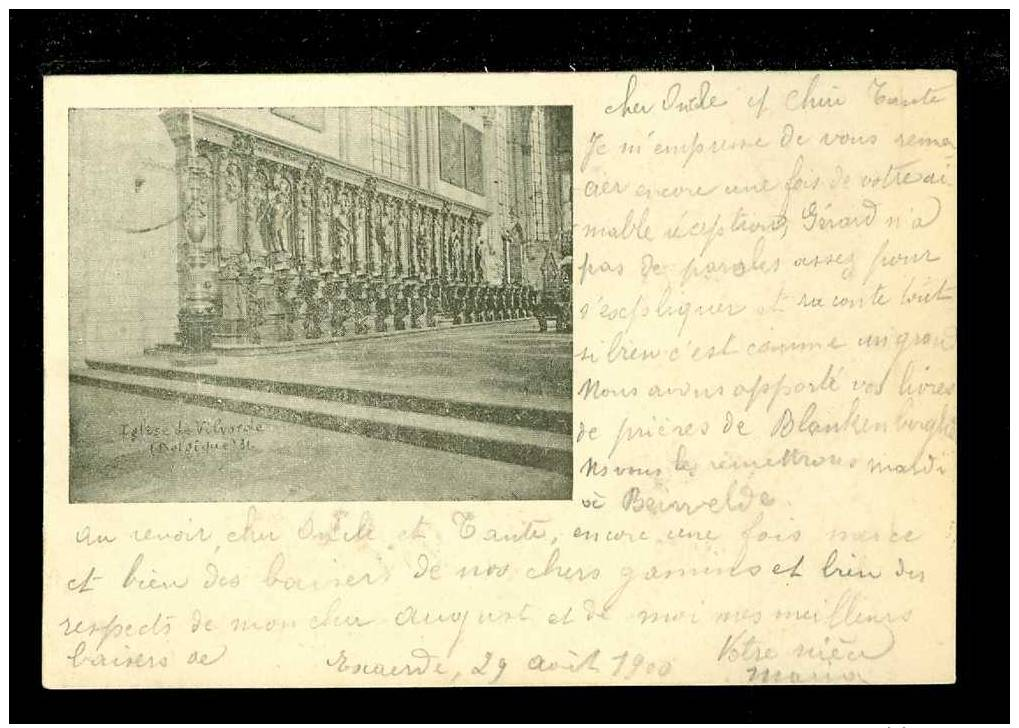 cher Oncle et chère Tante
Je m'empresse de vous remer
cier encore une fois de votre ai
mable réception, Gérard n'a
pas de paroles assez pour
s'expliquer et raconte tout
si bien c'est comme un grand
Nous avons apporté vos livres
de prières de Blankenberghe
ns vous les remettrons mardi
à Beirvelde
Eglise de Vilvorde
(Belgique)
au revoir, cher Oncle et Tante, encore une fois merce
et bien des baisers de nos chers gamins et bien des
respects de mon cher August et de moi mes meilleurs
baisers de
Exaerde, 29 août 1900
Votre nièce
Maria